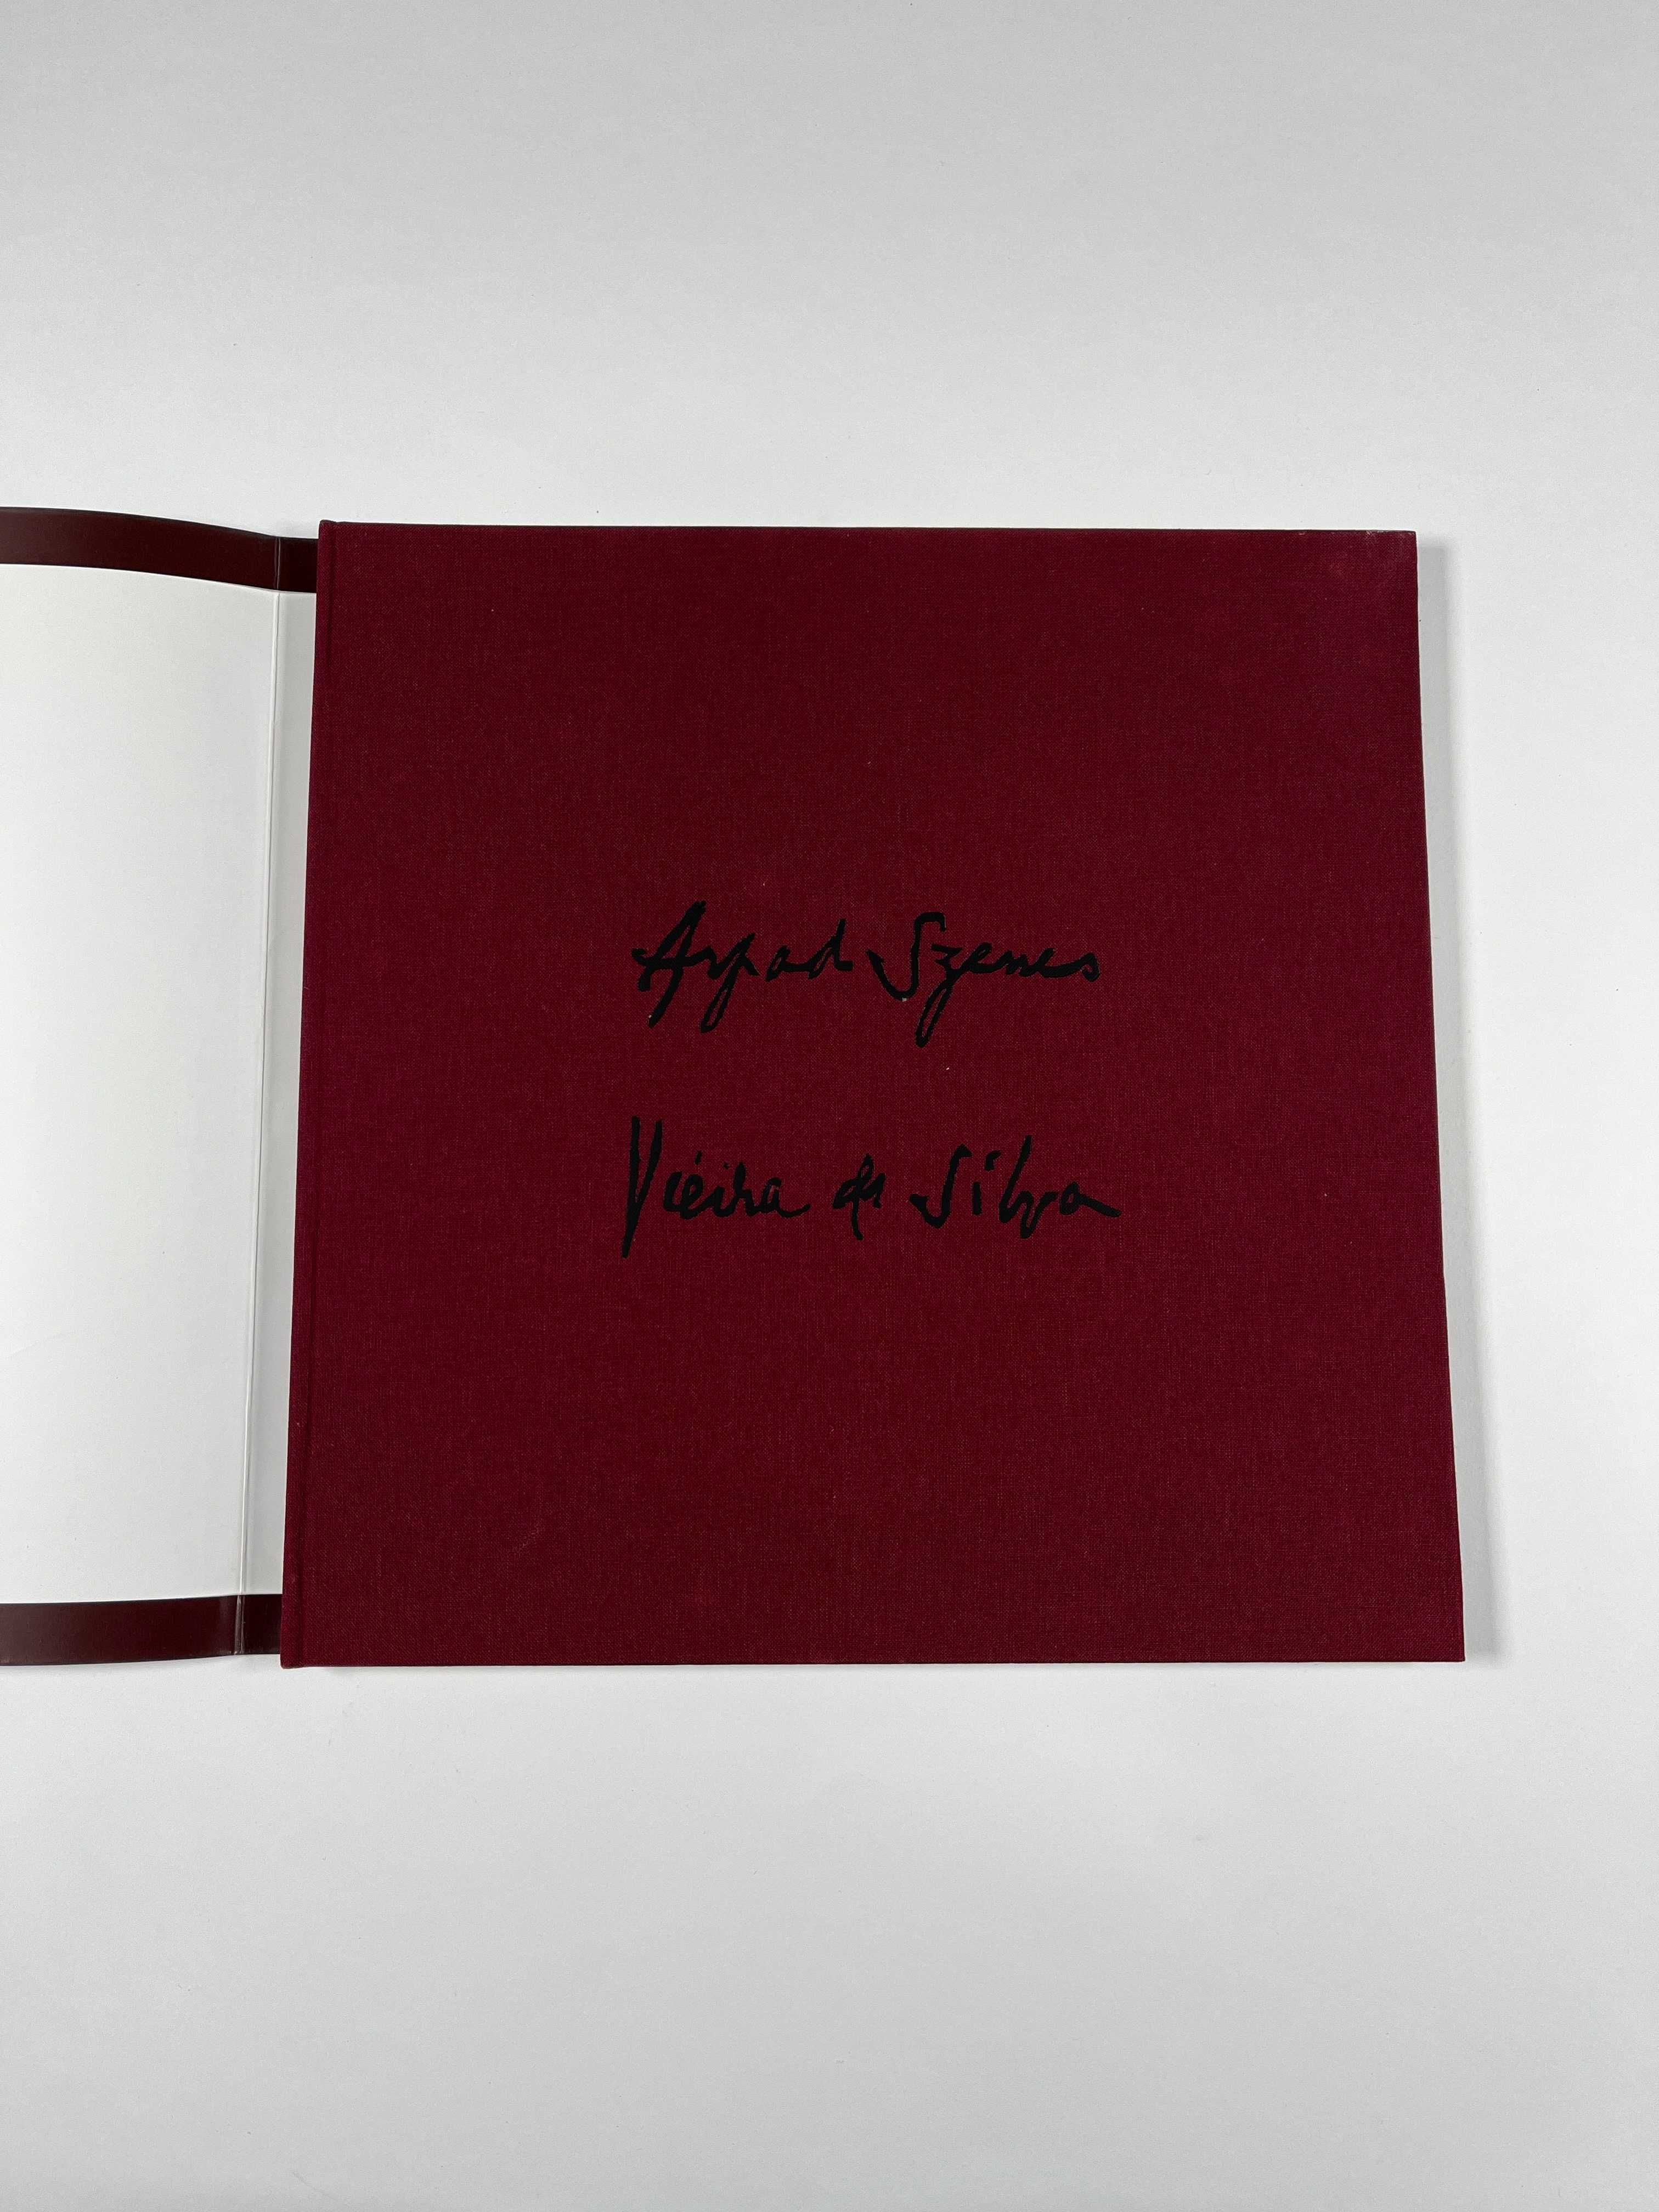 Arpad Szenes
Vieira da Silva